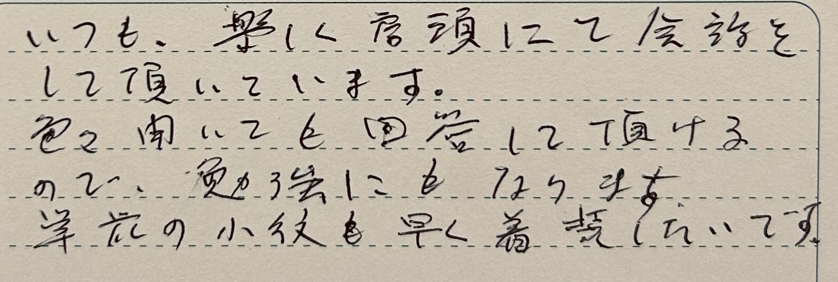 いつも、楽しく店頭にて会話を
して頂いています。
色々聞いても回答して頂ける
ので、勉強にもなります
草花の小紋も早く着装したいです。